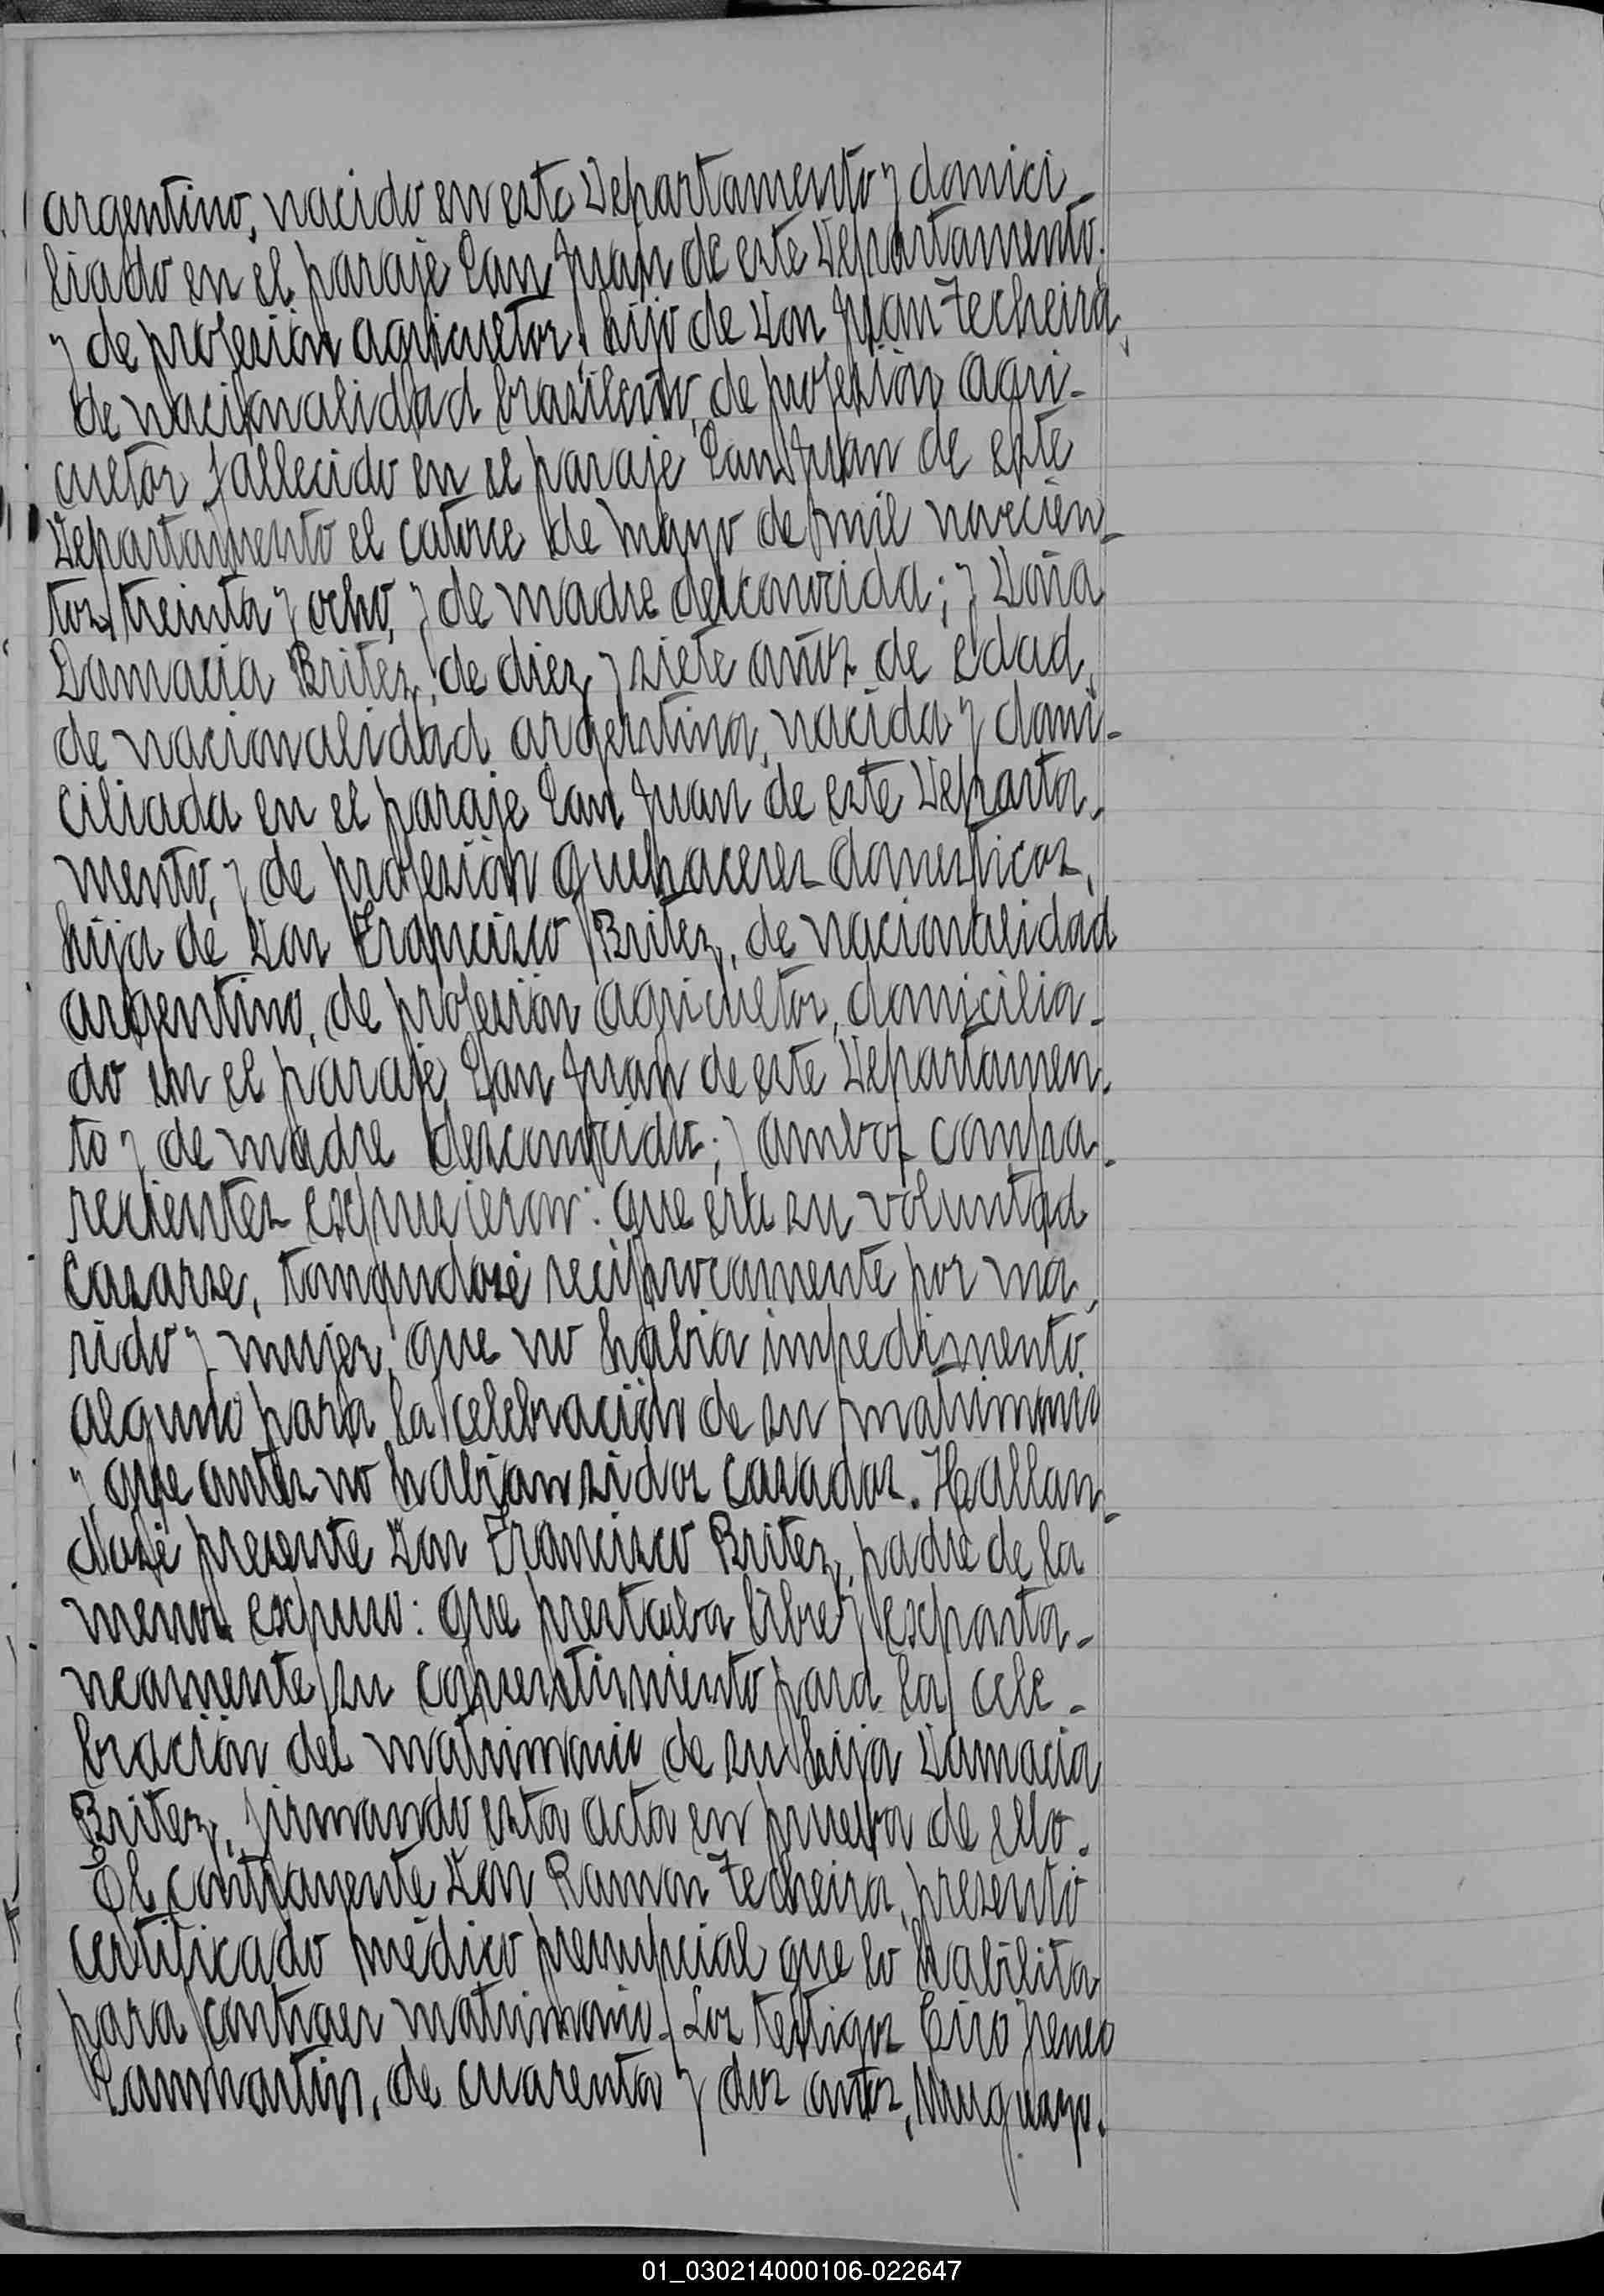 argentino, nacido en este Departamento y domici-
liado en el paraje San Juan de este Departamento,
y de profesión agricultor, hijo de Don Juan Techeira,
de nacionalidad brasilero, de profesión agri-
cultor, fallecido en el paraje San Juan de este
Departamento el catorce de mayo de mil novecien-
tos treinta y ocho, y de madre desconocida; y Doña
Damacia Britez, de diez y siete años de edad,
de nacionalidad argentina, nacida y domi-
ciliada en el paraje San Juan de este Departa-
mento, y de profesión quehaceres domesticos,
hija de Don Francisco Britez, de nacionalidad
argentino, de profesión agricultor, domicilia-
do en el paraje San Juan de este Departamen-
to y de madre desconocida; y ambos compa-
recientes expusieron: que era su voluntad
casarse, tomandose reciprocamente por ma-
rido y mujer, que no habia impedimento
alguno para la celebración de su matrimonio
y que antes no habian sidos casados. Hallan-
dose presente Don Francisco Britez, padre de la
menor expuso: que prestaba libre y exponta-
neamente su consentimiento para la cele-
bración del matrimonio de su hija Damacia
Britez, firmando esta acta en prueba de ello.
El contrayente Don Ramon Techeira, presentó
certificado médico prenupcial que lo habilita
para contraer matrimonio. Los testigos Ciro Jreneo
Sanmartin, de cuarenta y dos años, Uruguayo.
01_030214000106-022647